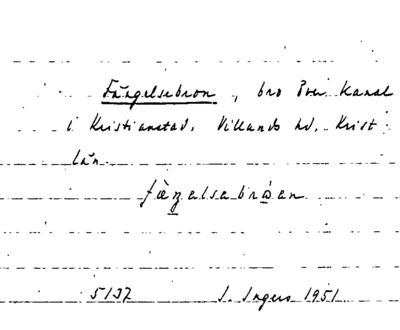 Fängelsebron, bro över kanal
i Kristianstad. Villands hd. Krist
län.
fàŋelsebróen
5137 I. Ingers 1951